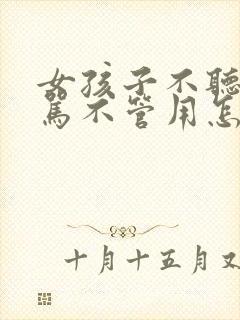 女孩子不聽
罵不管用怎
十月十五月又